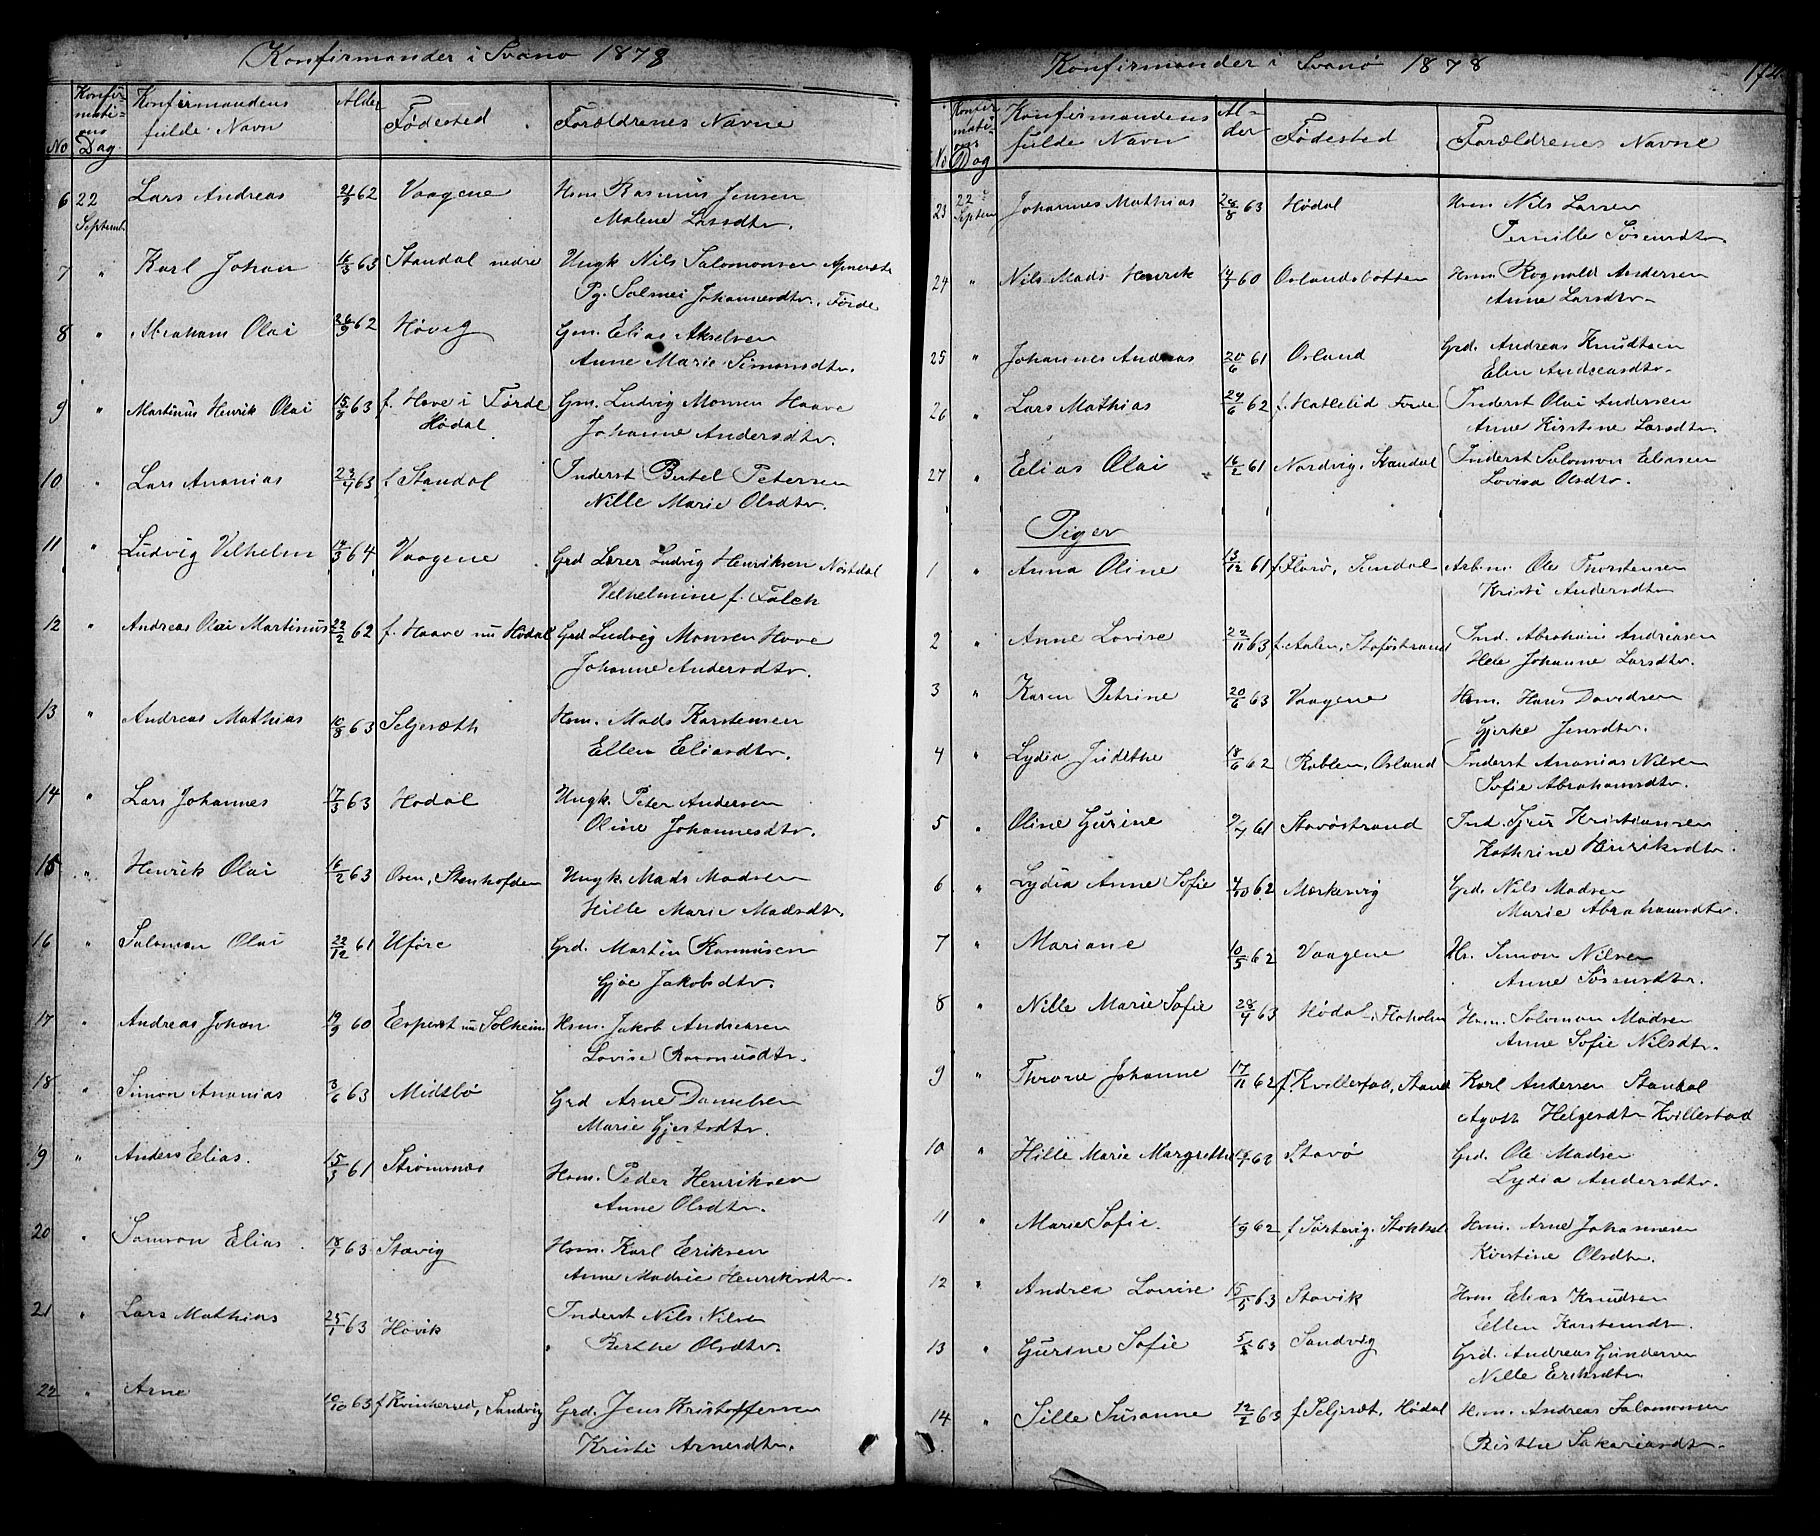 Konfirmander i Svanø 1878
No
Konfirmations Dag
Konfirmandens fulde Navn
Alder
Fødested
Forældrenes Navne
6 22 Septemb. Lars Andreas 21/9 62 Vaagene Hsm Rasmus Jensen
Malene Larsdtr.
7 " Karl Johan 16/3 63 Standal nedre Ungk Nils Salomonsen
Pg. Solmei Johannesdtr. Førde
8 " Abraham Olai 26/9 62 Høvig Gm. Elias Akselsen
Anne Marie Simonsdtr.
9 " Martinus Henrik Olai 63 f. Hove i Førde Gm. Ludvig Monsen Haave
Hødal Johanne Andersdtr.
10 " Lars Ananias 23/4 63 f Standal Inderst Bertel Petersen
Nille Marie Olsdtr.
11 " Ludvig Vilhelm 64 Vaagene Grd Lærer Ludvig Henriksen Nøstdal
Vilhelmine f. Falch
12 " Andreas Olai Martinus 22/2 62 f. Haave nu Hødal Grd Ludvig Monsen Hove
Johanne Andersdtr.
13 " Andreas Mathias 10/8 63 Seljesæth Hsm. Mads Karstensen
Ellen Eliasdtr.
14 " Lars Johannes 7/3 63 Hødal Ungk. Peter Andersen
Oline Johannesdtr.
15 " Henrik Olai 16/2 63 Osen, Stenhofden Ungk. Mads Madsen
Hille Marie Madsdtr.
16 " Salomon Olai 22/12 61 Uføre Grd. Martin Rasmusen
Gjøe Jakobsdtr.
17 " Andreas Johan 19/9 60 Espeset nu Solheim Hsm. Jakob Andreasen
Lovise Rasmusdtr.
18 " Simon Ananias 3/6 63 Midtbø Grd Arne Danielsen
Marie Gjertsdtr.
9 " Anders Elias. 15/3 61 Strømnæs Hsm. Peder Henriksen
Anne Olsdtr.
20 " Samson Elias 18/1 63 Stavig Hsm. Karl Eriksen
Anne Madrie Henriksdtr.
21 " Lars Mathias 25/1 63 Høvik Inderst Nils Nilsen
Berthe Olsdtr.
22 " Arne 19/10 63 f Kvinherred, Sandvig Grd. Jens Kristoffersen
Kristi Arnesdtr.
Konfirmander i Svanø 1878
172.
No
Konfirmations Dag
Konfirmandens fulde Navn
Alder
Fødested
Forældrenes Navne
23 22 Septem Johannes Mathias 28/8 63 Hødal Hsm Nils Larsen
Pernille Sørensdtr
24 " Nils Mads Henrik 14/5 60 Oslandsbotten Hsm. Rognald Andersen
Anne Larsdtr.
25 " Johannes Andreas 20/6 61 Osland Grd. Andreas Knudtsen
Elen Andreasdtr.
26 " Lars Mathias 24/6 62 f. Hatlelid Førde Inderst Olai Andersen
Anne Kirstine Larsdtr.
27 " Elias Olai 16/2 61 Nordvig, Standal Inderst Salomon Eliasen
Lovisa Olsdtr.
Piger
1 " Anna Oline 13/12 61 f Florø, Sundal Arbm. Ole Thorstensen
Kristi Andersdtr
2 " Anne Lovise 22/11 63 f Aalen, Stoføstrand Ind. Abraham Andreasen
Johanne Larsdtr.
3 " Karen Petrine 20/6 63 Vaagene Hsm. Hans Davidsen
Gjerke Jensdtr.
4 " Lydia Judithe 18/6 62 Osland Inderst Ananias Nilsen
Sofie Abrahamsdtr.
5 " Oline Gurine 61 Stavøstrand Ind. Sjur Kristiansen
Kathrine Henriksdtr.
6 " Lydia Anne Sofie 4/10 62 Mørkevig Grd. Nils Madsen
Marie Abrahamsdtr.
7 " Mariane 10/5 62 Vaagene Hs. Simon Nilsen
Anne Sørensdtr.
8 " Nille Marie Sofie 28/4 63 Hødal, Floholm Hsm. Salomon Madsen
Anne Sofie Nilsdtr.
9 " Throne Johanne 17/11 62 f. Kvillestad, Stand Karl Andersen Standal
Agoth Helgesdtr Kvillestad
10 " Hille Marie Margrethe 62 Stavø Grd. Ole Madsen
Lydia Andersdtr.
11 " Marie Sofie. 1/9 62 f Sørtevig, Hsm. Arne Johannesen
Kirstine Olsdtr.
12 " Andrea Lovise 15/5 63 Stavik Hsm Elias Knudsen
Ellen Karstensdtr.
13 " Gurine Sofie 63 Sandvig Grd. Andreas Gundersen
Nille Eriksdtr.
14 " Sille Susanne 12/2 63 f Seljesæt, Hødal Hsm. Andreas Salomonsen
Birthe Sakariasdtr.